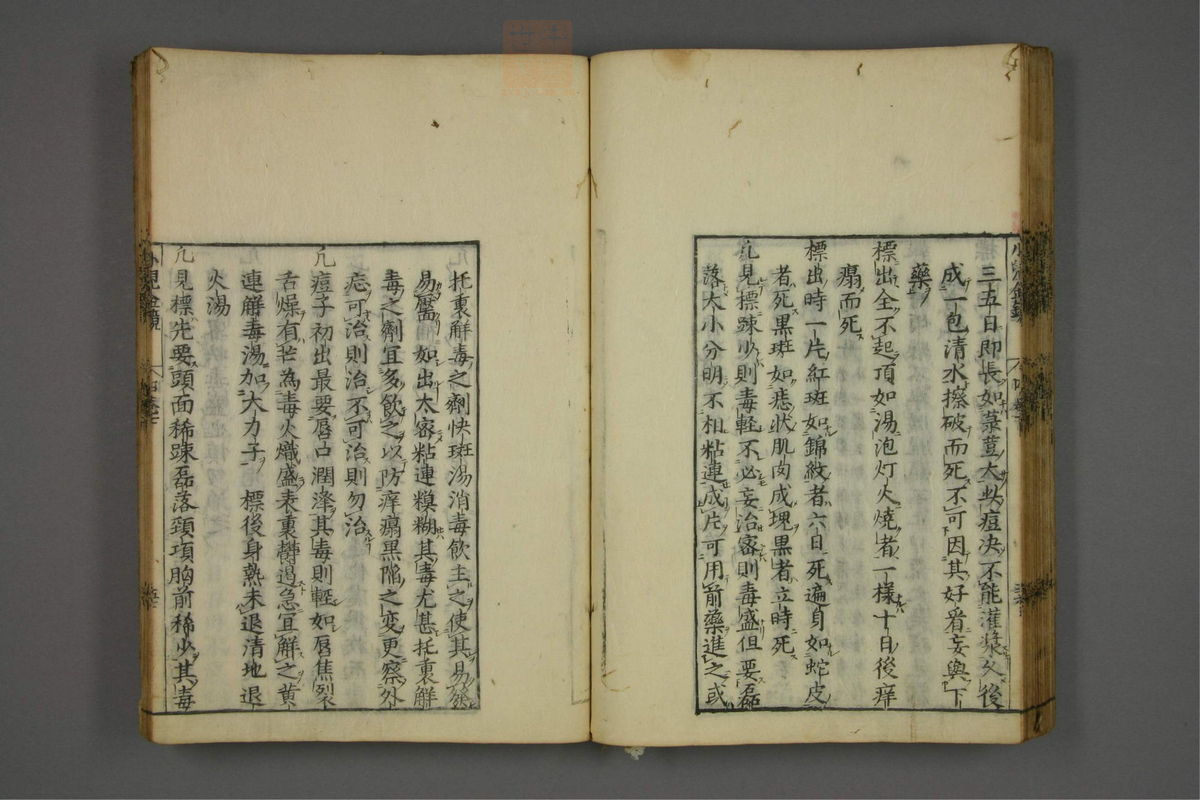 三五日即長如菉荳大此痘决不能灌漿久後
成一包清水擦破而死不可因其好看妄與下
藥
標出全不起頂如湯泡灯火燒者一樣十日後痒
瘸而死
標出時一片紅斑如錦紋者六日死遍身如蛇皮
者死黒斑如痣狀肌肉成塊黒者立時死
凢見標踈少則毒軽不必妄治宻則毒盛但要磊
落大小分明不相粘連成片可用前藥進之或
托裏解毒之劑快斑湯消毒飲主之使其易發
易靨如出太宻粘連糢糊其毒尤甚托裏解
毒之劑宜多飲之以防痒瘸黒陥之変更察外
可治則治不可治則勿治
凢痘子初出最要唇口潤澤其毒則軽如唇焦裂
舌燥有芒為毒火熾盛表裏欝遏急宜解之黄
連解毒湯加大力子標後身熱未退清地退
火湯
凢見標先要頭面稀踈磊落頸項胸前稀少其毒